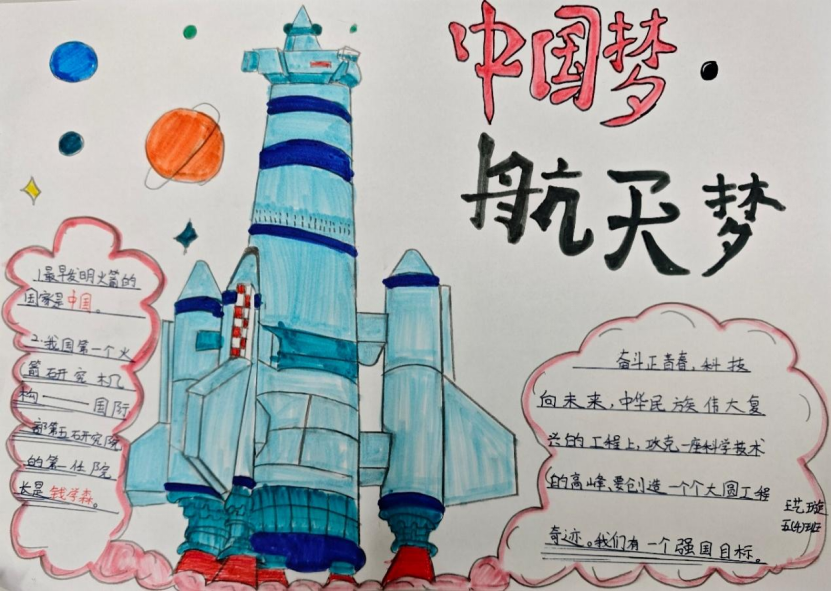 中国梦
航天梦
1.最早发明火箭的
国家是中国。
2.我国第一个火
箭研究机
构——国防
部第五研究院
的第一任院
长是钱学森。
奋斗正青春,科技
向未来,中华民族伟大复
兴的工程上,攻克一座科学技术
的高峰、要创造一个个大国工程
奇迹。我们有一个强国目标。
五(4)班